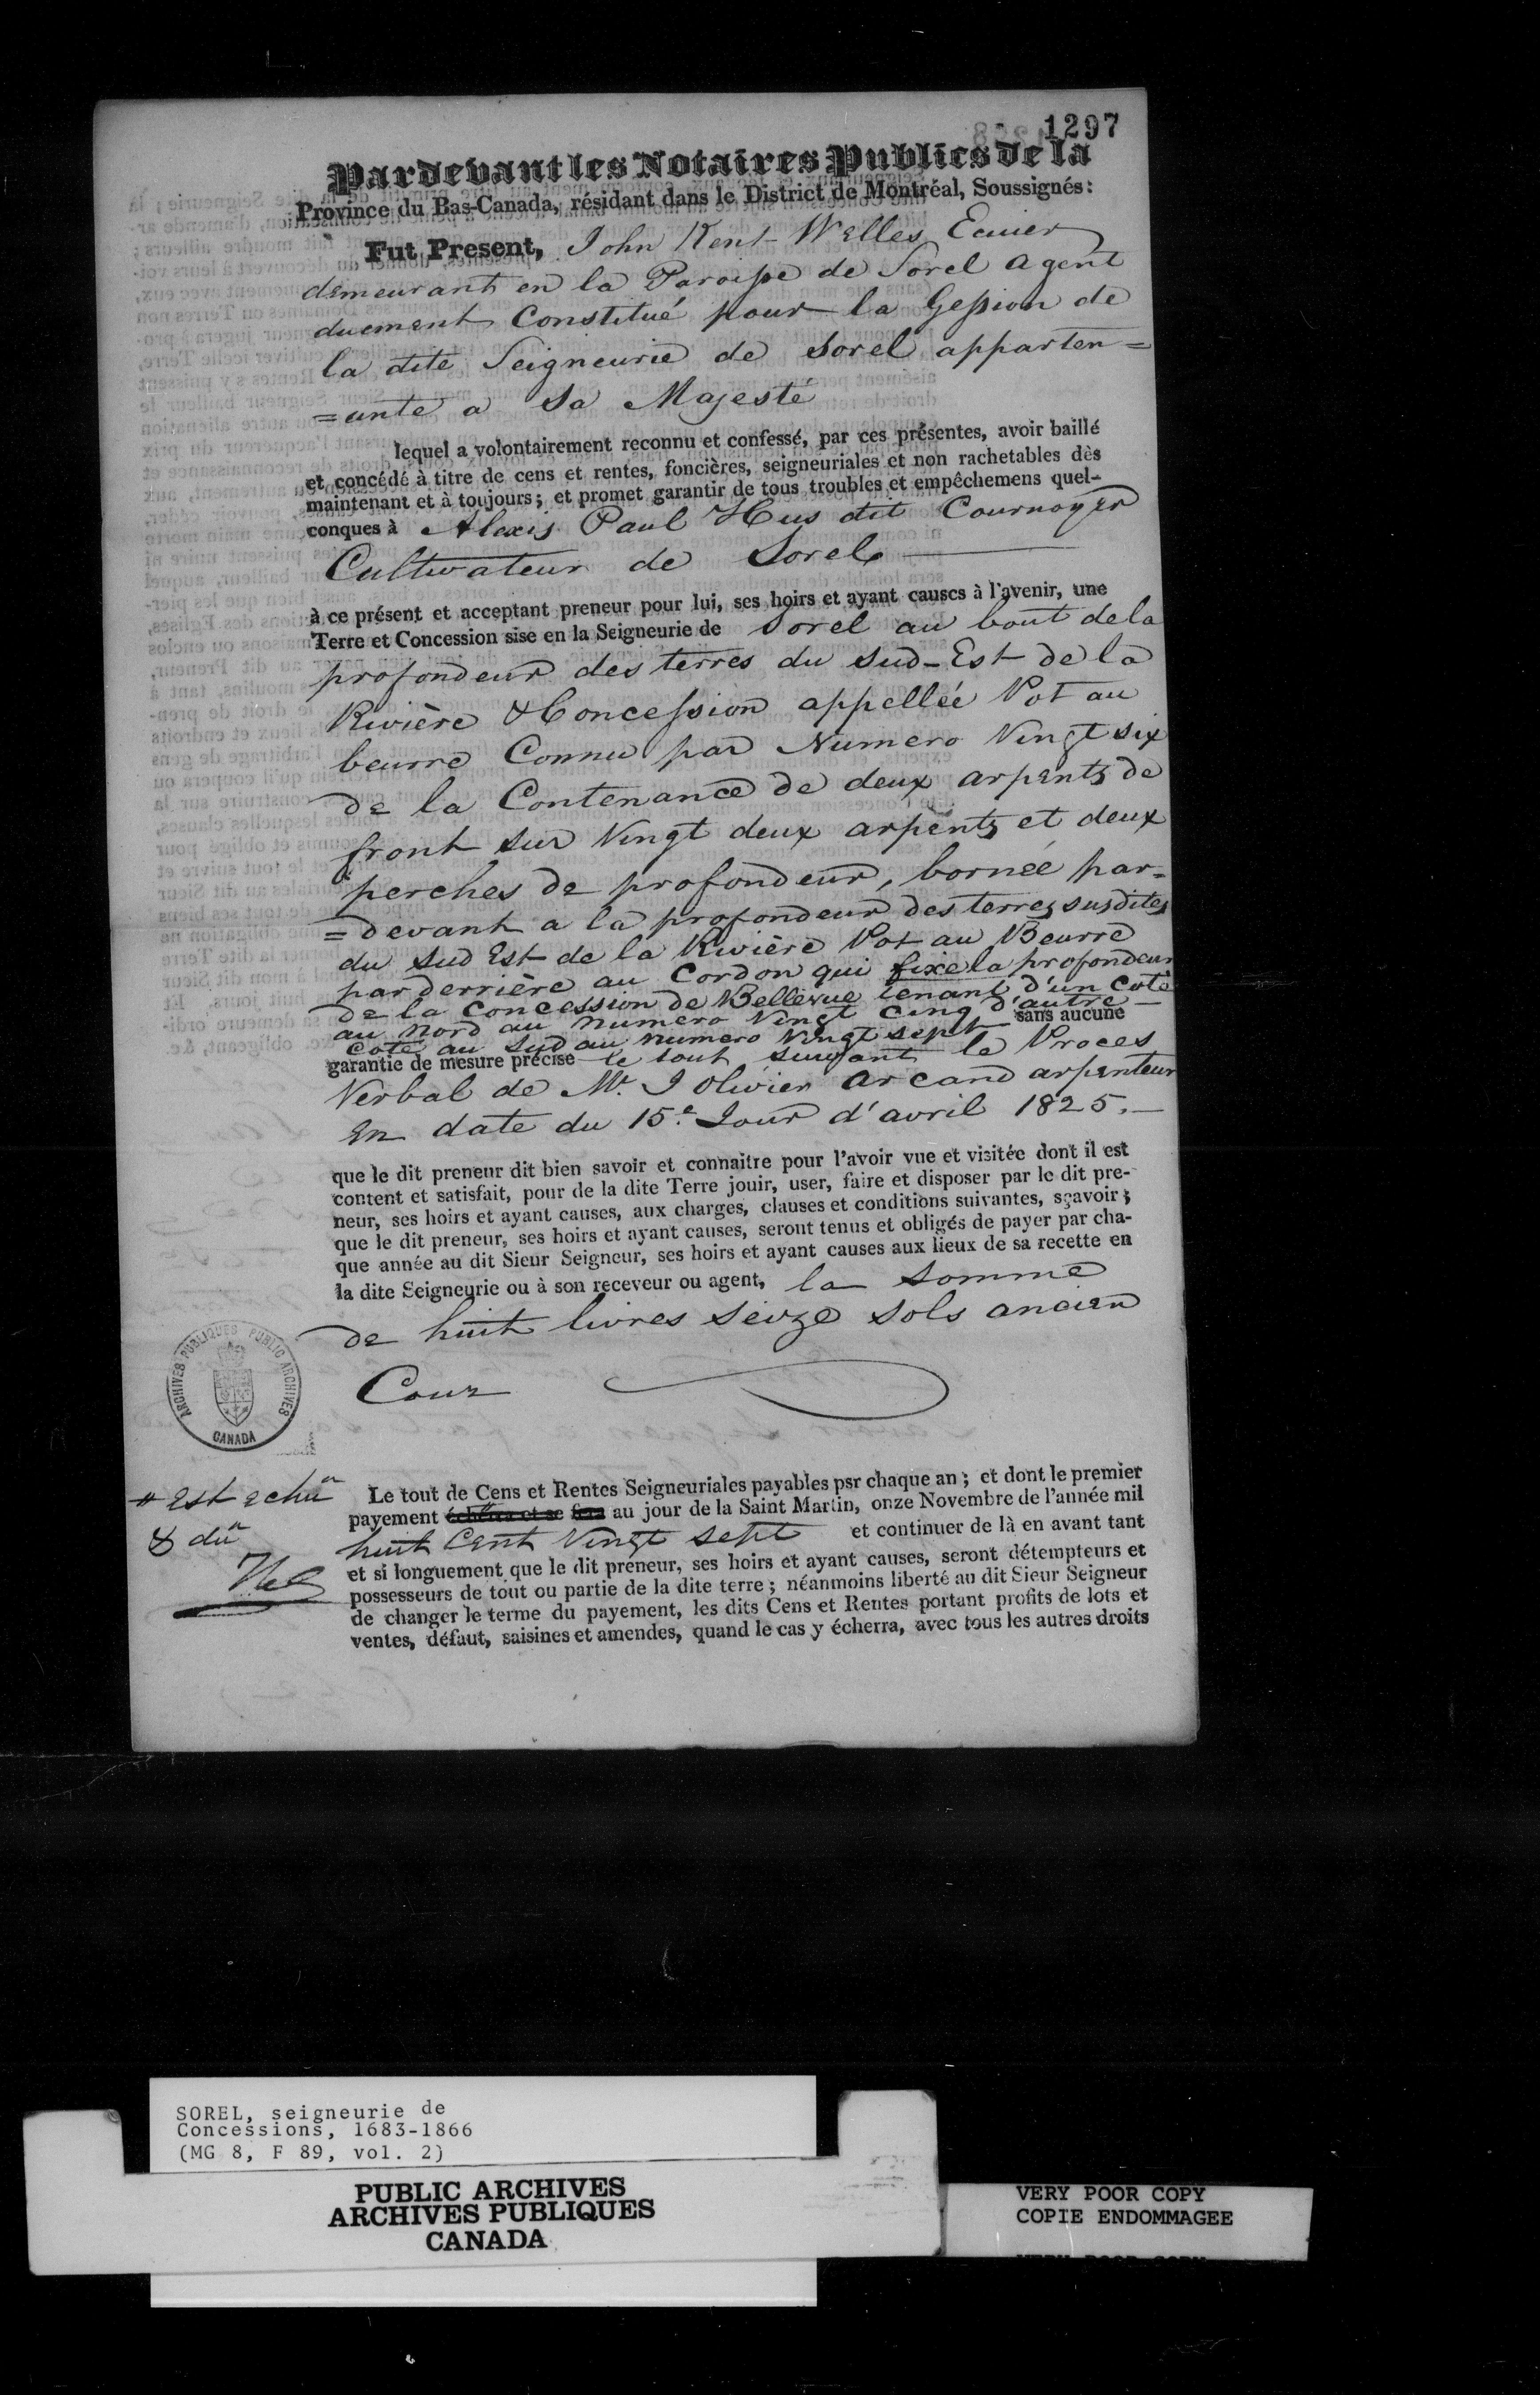 1297
Pardevant les Notaires Publics de la
Province du Bas-Canada, résidant dans le District de Montréal, Soussignés:
Fut Present, John Kent Welles Ecuier
demeurant en la Paroisse de Sorel agent
duement Constitué pour la Gession de
la dite Seigneurie de Sorel apparten=
=ante a Sa Majesté
lequel a volontairement reconnu et confessé, par ces présentes, avoir baillé
et concédé à titre de cens et rentes, foncières, seigneuriales et non rachetables dès
maintenant et à toujours; et promet garantir de tous troubles et empêchemens quel-
conques à Alexis Paul Hus dit Cournoyer
Cultivateur de Sorel
à ce présent et acceptant preneur pour lui, ses hoirs et ayant causes à l'avenir, une
Terre et Concession sise en la Seigneurie de Sorel au bout de la
profondeur des terres du Sud-Est de la
Rivière & Concession appellée Pot au
beurre Connu par Numero Vingt six
de la Contenance de deux arpents de
front sur Vingt deux arpents et deux
perches de profondeur, bornée par=
=devant a la profondeur des terres susdites
du Sud Est de la Rivière Pot au Beurre
par derrière au Cordon qui fixe la profondeur
de la Concession de Bellevue tenant d'un coté
au nord au numero Vingt Cinq d'autre
coté au Sud au numero Vingt sept sans aucune
garantie de mesure précise le tout suivant le Proces
Verbal de Mr. J Olivier Arcand arpenteur
En date du 15e. Jour d'avril 1825.
que le dit preneur dit bien savoir et connaitre pour l'avoir vue et visitée dont il est
content et satisfait, pour de la dite Terre jouir, user, faire et disposer par le dit pre-
neur, ses hoirs et ayant causes, aux charges, clauses et conditions suivantes, sçavoir;
que le dit preneur, ses hoirs et ayant causes, seront tenus et obligés de payer par cha-
que année au dit Sieur Seigneur, ses hoirs et ayant causes aux lieux de sa recette en
la dite Seigneurie ou à son receveur ou agent, la Somme
de huit livres Seize Sols ancien
Cour
ARCHIVES PUBLIQUES PUBLIC ARCHIVES
CANADA
# Est echu
& du
Le tout de Cens et Rentes Seigneuriales payables psr chaque an; et dont le premier
payement échéera et se fera au jour de la Saint Martin, onze Novembre de l'année mil
huit Cent Vingt Sept et continuer de là en avant tant
et si longuement que le dit preneur, ses hoirs et ayant causes, seront détempteurs et
possesseurs de tout ou partie de la dite terre; néanmoins liberté au dit Sieur Seigneur
de changer le terme du payement, les dits Cens et Rentes portant profits de lots et
ventes, défaut, saisines et amendes, quand le cas y écherra, avec tous les autres droits
SOREL, seigneurie de
Concessions, 1683-1866
(MG 8, F 89, vol. 2)
PUBLIC ARCHIVES
ARCHIVES PUBLIQUES
CANADA
VERY POOR COPY
COPIE ENDOMMAGEE
VERY POOR COPY